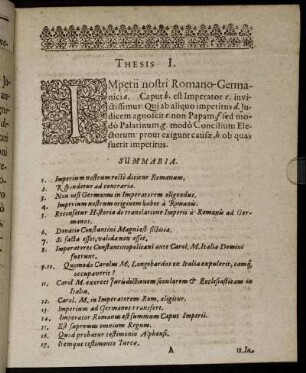 THESIS I.
IMperii nostri Romano-Germa-
nici a. Caput b. est Imperator c. invi-
ctissimus: Qui ab aliquo impetitus d. Iu-
dicem agnoscit e. non Papam f. sed mo-
dò Palatinum g. modò Concilium Ele-
ctorum: prout exigunt causæ, h. ob quas
fuerit impetitus.
SUMMARIA.
1. Imperium nostrum rectè dicitur Romanum,
2. Respondetur ad contraria.
3. Non nisi Germanus in Imperatorem eligendus,
4. Imperium nostrum originem habet à Romanis.
5. Recensetur Historia de translatione Imperii à Romanis ad Ger-
manos.
6. Donatio Constantini Magni est fictitia,
7. Si facta esset, valida non esset,
8. Imperatores Constantinopolitani ante Carol, M. Italiæ Domini
fuerunt,
9.10. Quomodo Carolus M, Longobardos ex Italia expulerit, eamq́,
occupaverit?
11. Carol M. exercet Jurisdictionem secularem & Ecclesiasticam in
Italia,
12. Carol. M, in Imperatorem Rom, eligitur.
13. Imperium ad Germanos transfert.
14. Imperator Romanus est summum Caput Imperii.
15. Est supremus omnium Regum.
16. Quod probatur testimonio Alphonsi.
17. Itemque testimonio Turcæ.
A
18. In-